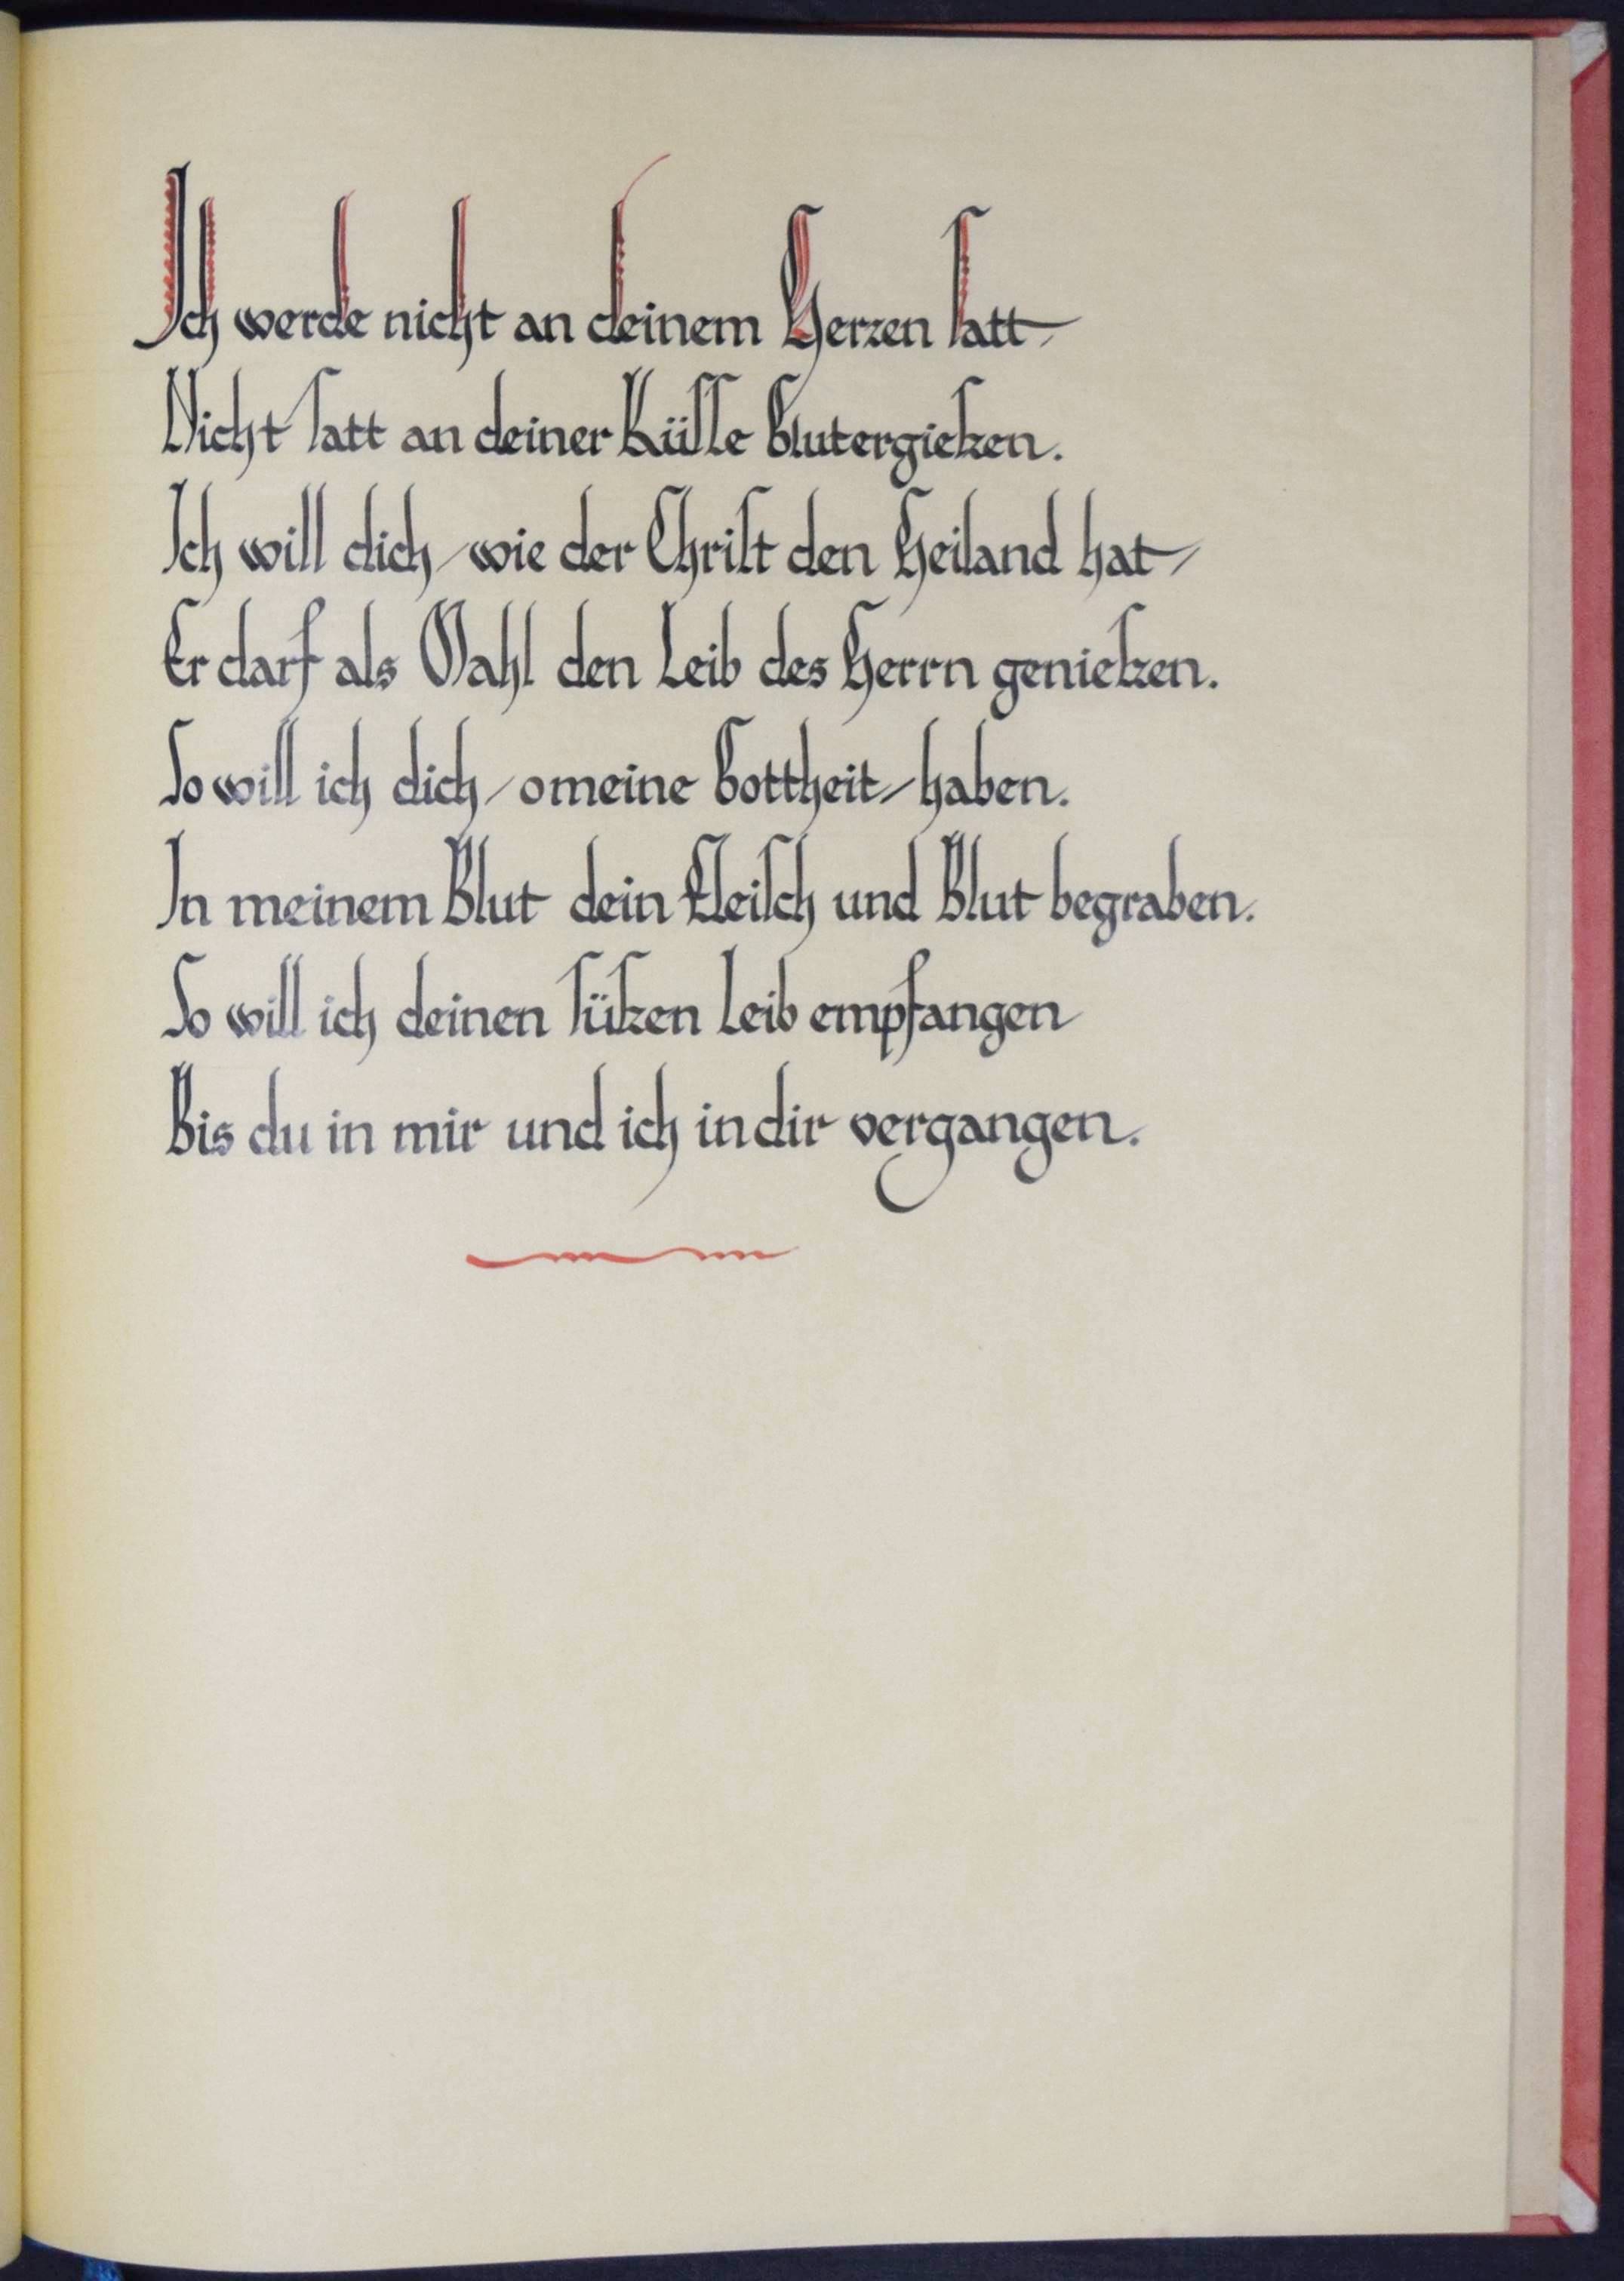 Ich werde nicht an deinem Herzen satt/
Nicht satt an deiner Küsse Glutergießen.
Ich will dich/wie der Christ den Heiland hat/
Er darf als Mahl den Leib des Herrn genießen.
So will ich dich/o meine Gottheit/haben.
In meinem Blut dein Fleisch und Blut begraben.
So will ich deinen süßen Leib empfangen
Bis du in mir und ich in dir vergangen.